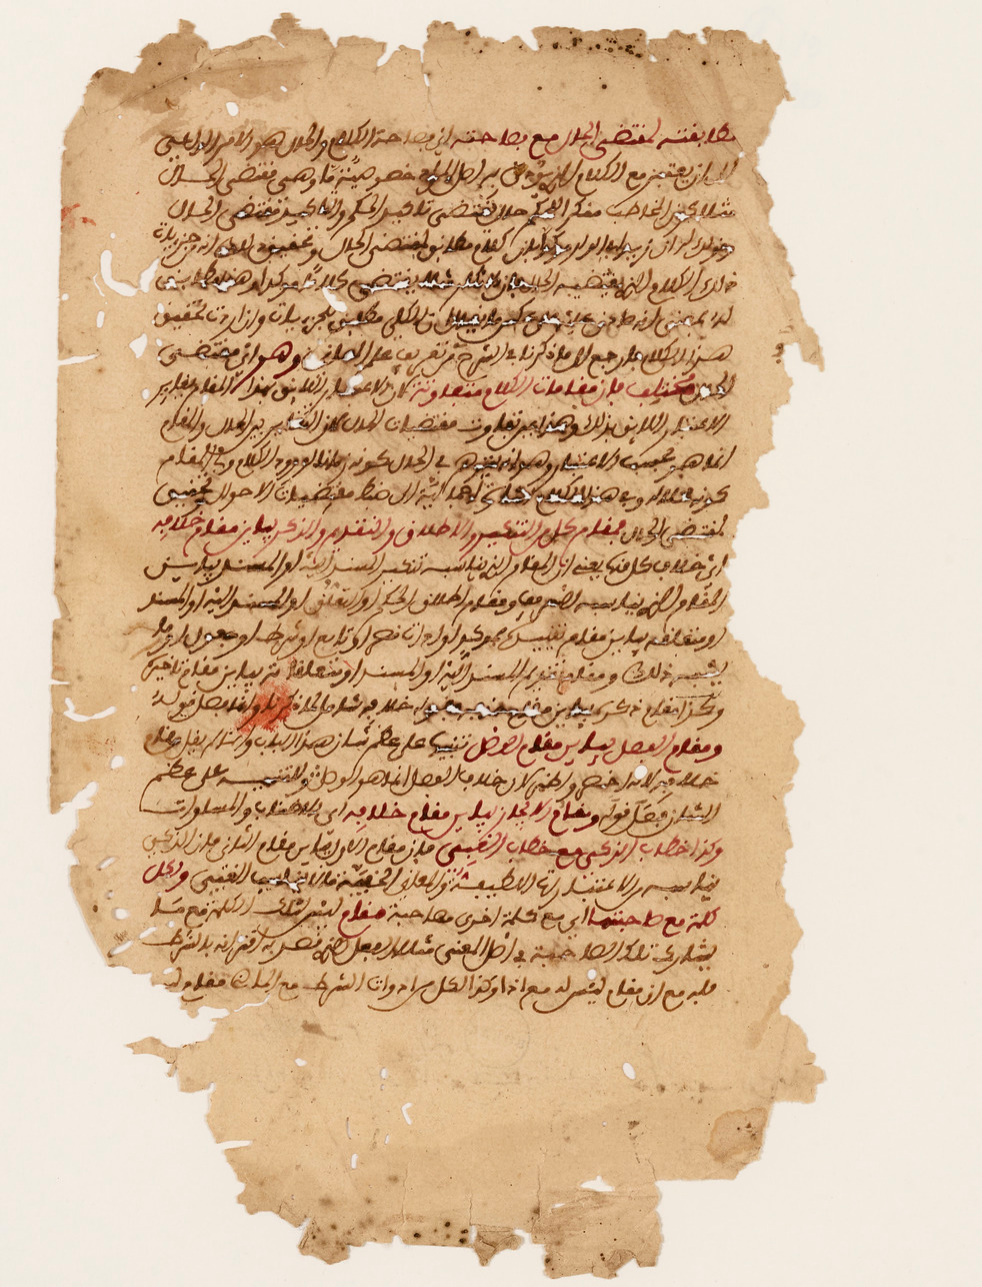 مطابقته لمقتضى الحال مع فصاحته اي فصاحة الكلام والحال هو الامر الداعي
الى ان يعتبر مع الكلام الذي يودى به اصل المراد خصوصية ما وهي مقتضى الحال
مثلا كون المخاطب منكرا للحكم حال يقتضي تاكيد الحكم والتاكيد مقتضى الحال
وقولك له ان زيدا في الدار مؤكدا بان كلام مطابق لمقتضى الحال وتحقيق ذلك انه جزئيات
ذلك الكلام الذي يقتضيه الحال فان الانكار مثلا يقتضي كلاما مؤكدا وهذا مطابق
له بمعنى انه صادق عليه على عكس ما يقال ان الكلي مطابق للجزييات وان اردت تحقيق
هذا الكلام فارجع الى ما ذكرنا في الشرح في تعريف علم المعاني وهو اي مقتضى
الحال مختلف فان مقامات الكلام متفاوتة لان الاعتبار اللائق بهذا المقام يغاير
الاعتبار اللائق بذلك وهذا عين تفاوت مقتضيات الحال لان التغاير بين الحال والمقام
انما هو بحسب الاعتبار وهو انه يتوهم في الحال كونه زمانا لورود الكلام وفي المقام
كونه محلا له وفي هذا الكلام اشارة الى ضبط مقتضيات الاحوال وتحقيق
لمقتضى الحال فمقام كل من التنكير والاطلاق والتقديم والذكر يباين مقام خلافه
اي خلاف كل منها يعني ان المقام الذي يناسبه تنكير المسند اليه او المسند يباين
المقام الذي يناسبه التعريف ومقام اطلاق الحكم او التعلق او المسند اليه او المسند
او متعلقه يباين مقام تقييده بموكد او اداة قصر او تابع او شرط او مفعول او ما
يشبه ذلك ومقام تقديم المسند اليه او المسند او متعلقاته يباين مقام تاخيره
وكذا مقام ذكره يباين مقام حذفه فقوله خلافه شامل لما ذكرنا وانما فصل قوله
ومقام الفصل يباين مقام الوصل تنبيها على عظم شان هذا الباب وانما لم يقل مقام
خلافه لانه اخصر واظهر لان خلاف الفصل انما هو الوصل وللتنبيه على عظم
الشان فصل قوله ومقام الايجاز يباين مقام خلافه اي الاطناب والمساوات
وكذا خطاب الذكي مع خطاب الغبي فان مقام الاول يباين مقام الثاني فان الذكي
يناسبه من الاعتبارات اللطيفة والمعاني الخفية ما لا يناسب الغبي ولكل
كلمة مع صاحبتها اي مع كلمة اخرى مصاحبة مقام ليس لتلك الكلمة مع ما
يشارك تلك المصاحبة في اصل المعنى مثلا الفعل الذي قصد به اقترانه بالشرط
فله مع ان مقام ليس له مع اذا وكذا لكل من ادوات الشرط مع الماضي مقام ليس